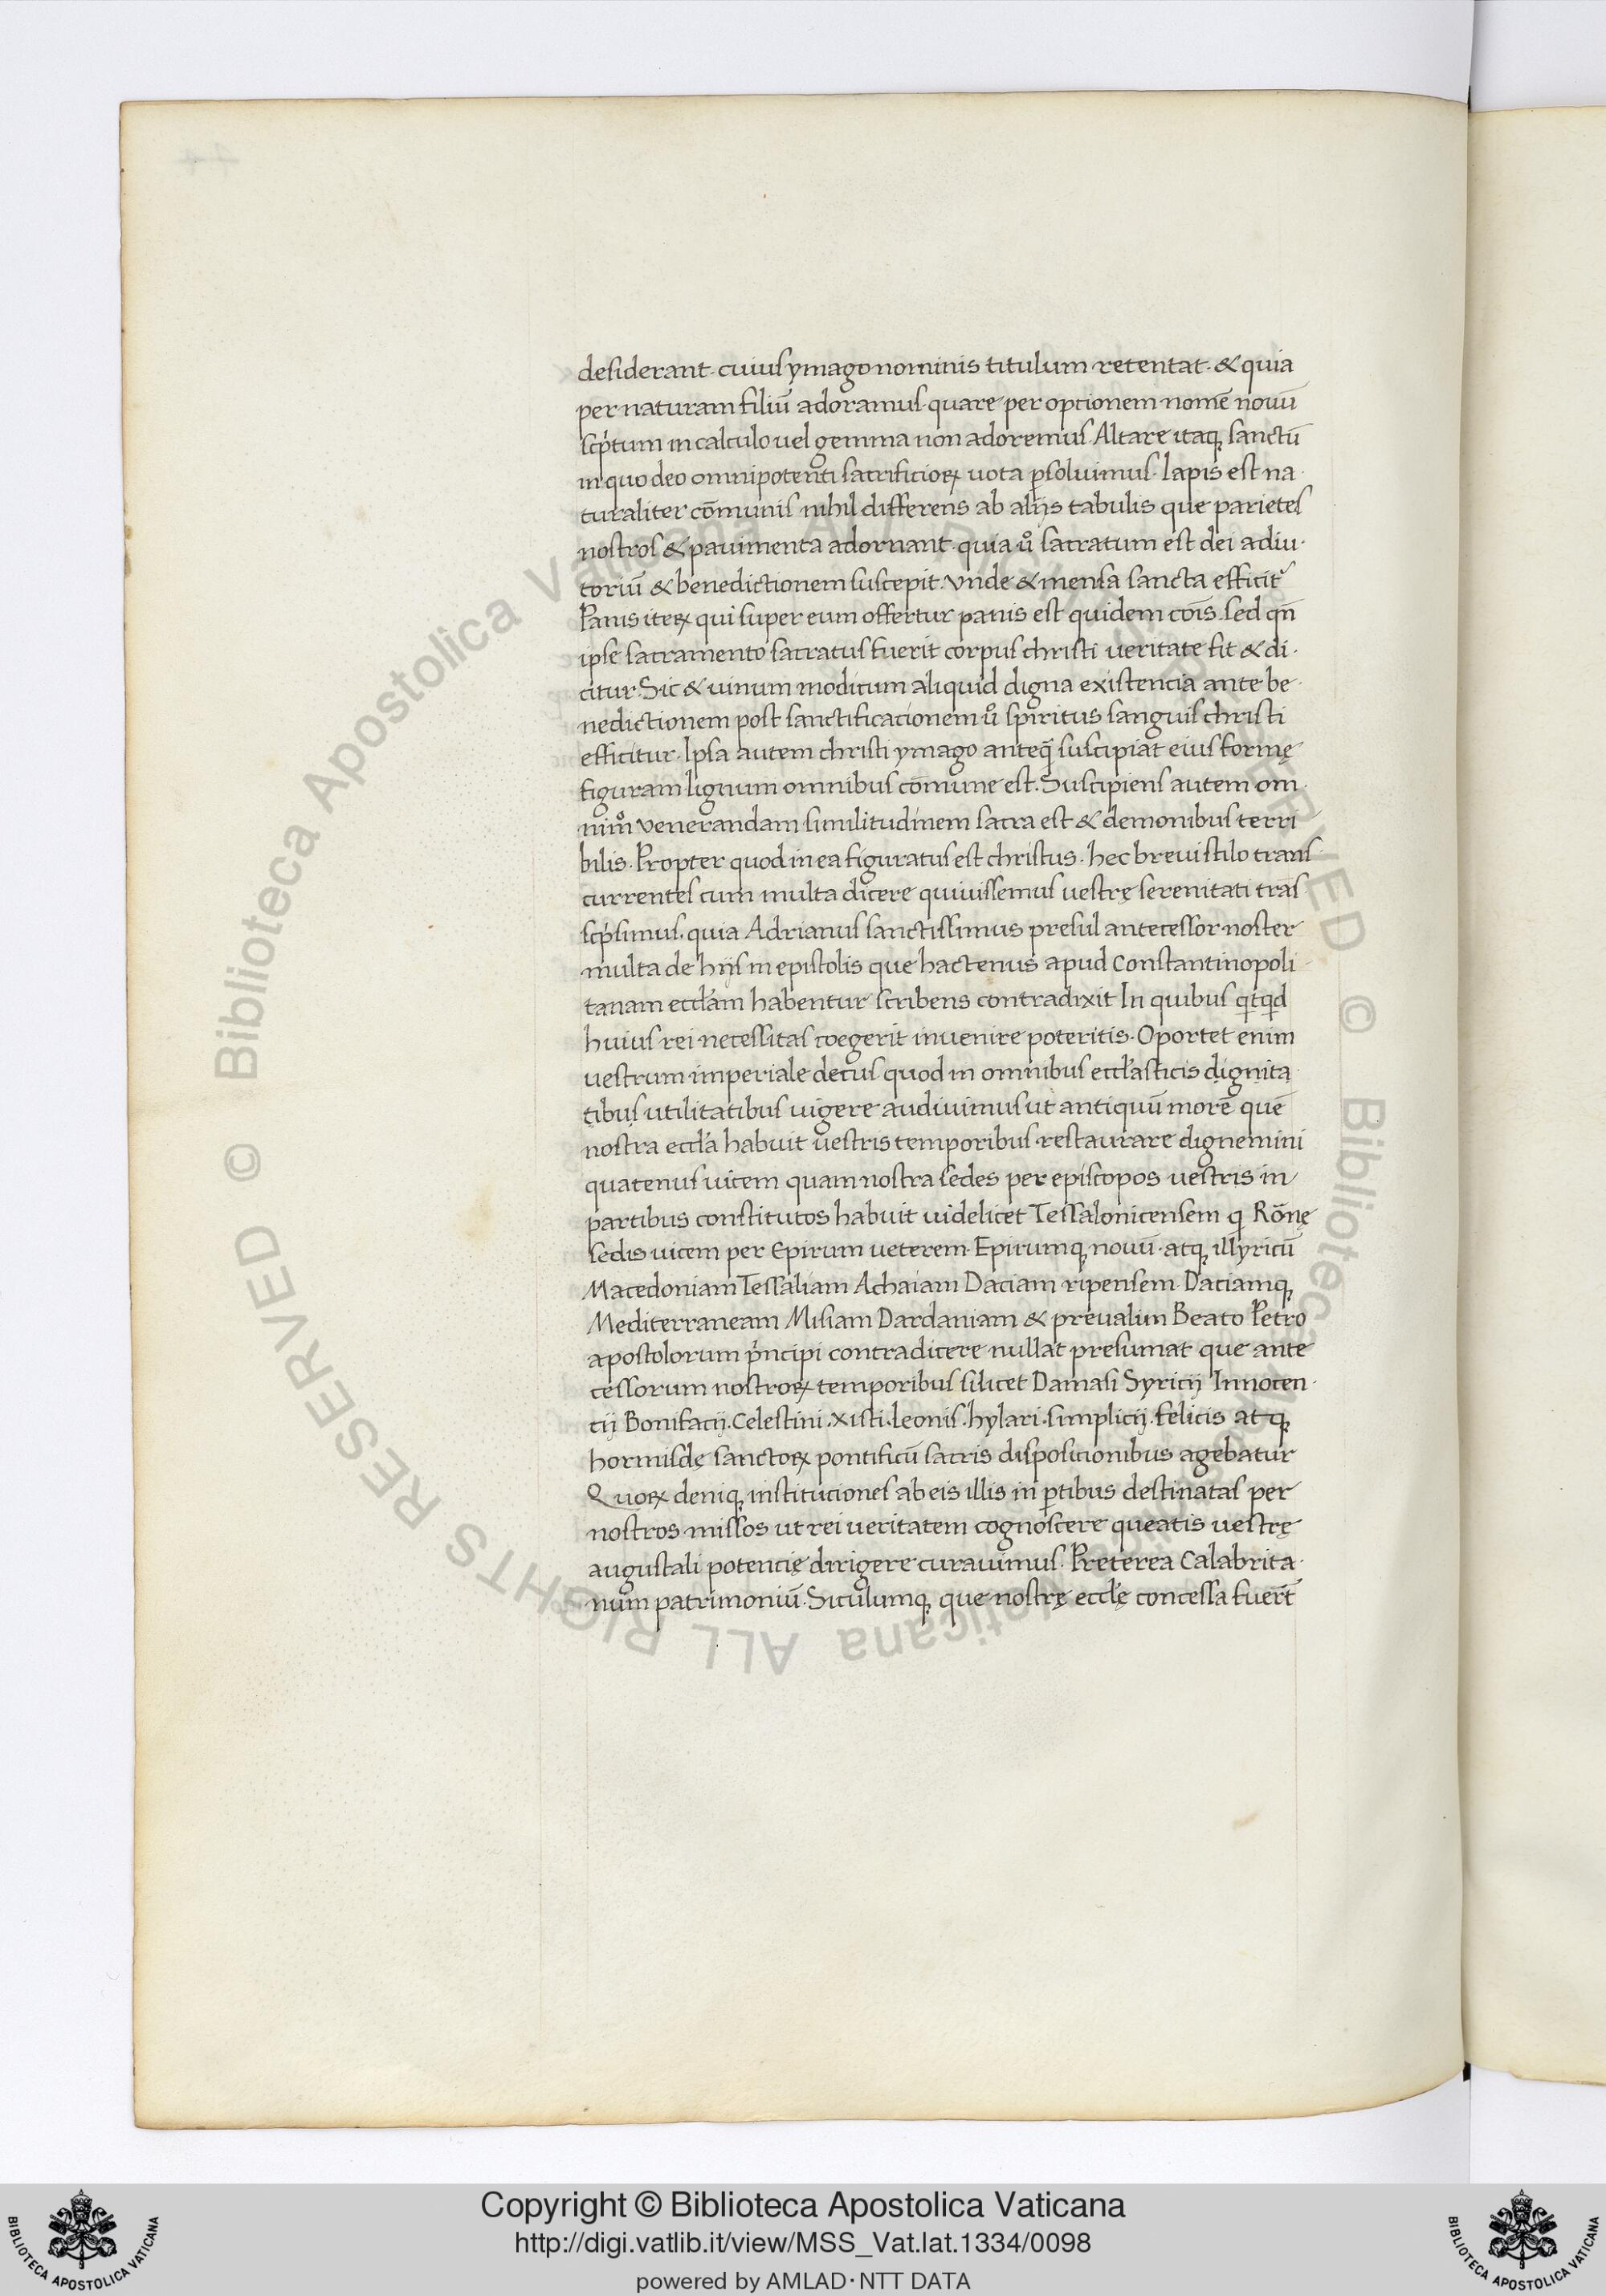 desiderant. cuius ymago nominis titulum retentat. & quia
per naturam filiū adoramus quare per optionem nomē nouū
scp̄tum in calculo uel gemma non adoremus. Altare itaq; sanctū
in quo deo omnipotenti sacrificioꝝ uota ꝑsoluimus. lapis est na
turaliter cōmunis nihil differens ab alijs tabulis que parietes
nostros & pauimenta adornant. quia uͦ sacratum est dei adiu
toriū & benedictionem suscepit. Vnde & mensa sancta efficit᷑
Panis iteꝝ qui super eum offertur panis est quidem cōis. sed qn̄
ipse sacramento sacratus fuerit corpus christi ueritate fit & di
citur. Sic & uinum modicum aliquid digna existencia ante be
nedictionem post sanctificacionem uͦ spiritus sanguis christi
efficitur. Ipsa autem christi ymago anteq̄ suscipiat eius formę
figuram lignum omnibus comune est. Suscipiens autem om
nimͦ venerandam similitudinem sacra est & demonibus terri
bilis. Propter quod in ea figuratus est christus. hec breui stilo trans
currentes cum multa dicere quiuissemus uestrę serenitati trās
scp̄simus. quia Adrianus sanctissimus presul antecessor noster
multa de hijs in epistolis que hactenus apud Constantinopoli
tanam eccl̄am habentur scribens contradixit In quibus qͥcqͥd
huius rei necessitas coegerit inuenire poteritis. Oportet enim
uestrum imperiale decus quod in omnibus eccl̄asticis dignita
tibus utilitatibus uigere audiuimus ut antiquū morē quē
nostra eccl̄a habuit uestris temporibus restaurare dignemini
quatenus uicem quam nostra sedes per episcopos uestris in
partibus constitutos habuit uidelicet Tessalonicensem q Rōnę
sedis uicem per Epirum ueterem. Epirumq; nouū. atq; illyricū
Macedoniam Tessaliam Achaiam Daciam ripensem. Daciamq;
Mediterraneam Misiam Dardaniam & preualim Beato Petro
apostolorum pͥncipi contradicere nullat presumat que ante
cessorum nostroꝝ temporibus silicet Damasi Syricij Innocen
tij Bonifacij. Celestini. Xisti. leonis. hylari. simplicij. felicis atq;
hormisdę sanctoꝝ pontificū sacris disposicionibus agebatur
Quoꝝ deniq; instituciones ab eis illis in ꝑtibus destinatas per
nostros missos ut rei ueritatem cognoscere queatis uestrę
augustali potencię dirigere curauimus. Preterea Calabrita
num patrimoniū. Siculumq; que nostrę eccl̄ę concessa fuer̄t
© Biblioteca Apostolica Vaticana ALL RIGHTS RESERVED © Biblioteca Apostolica Vaticana ALL RIGHTS RESERVED
BIBLIOTECA APOSTOLICA VATICANA
Copyright © Biblioteca Apostolica Vaticana
http://digi.vatlib.it/view/MSS_Vat.lat.1334/0098
powered by AMLAD · NTT DATA
BIBLIOTECA APOSTOLICA VATICANA